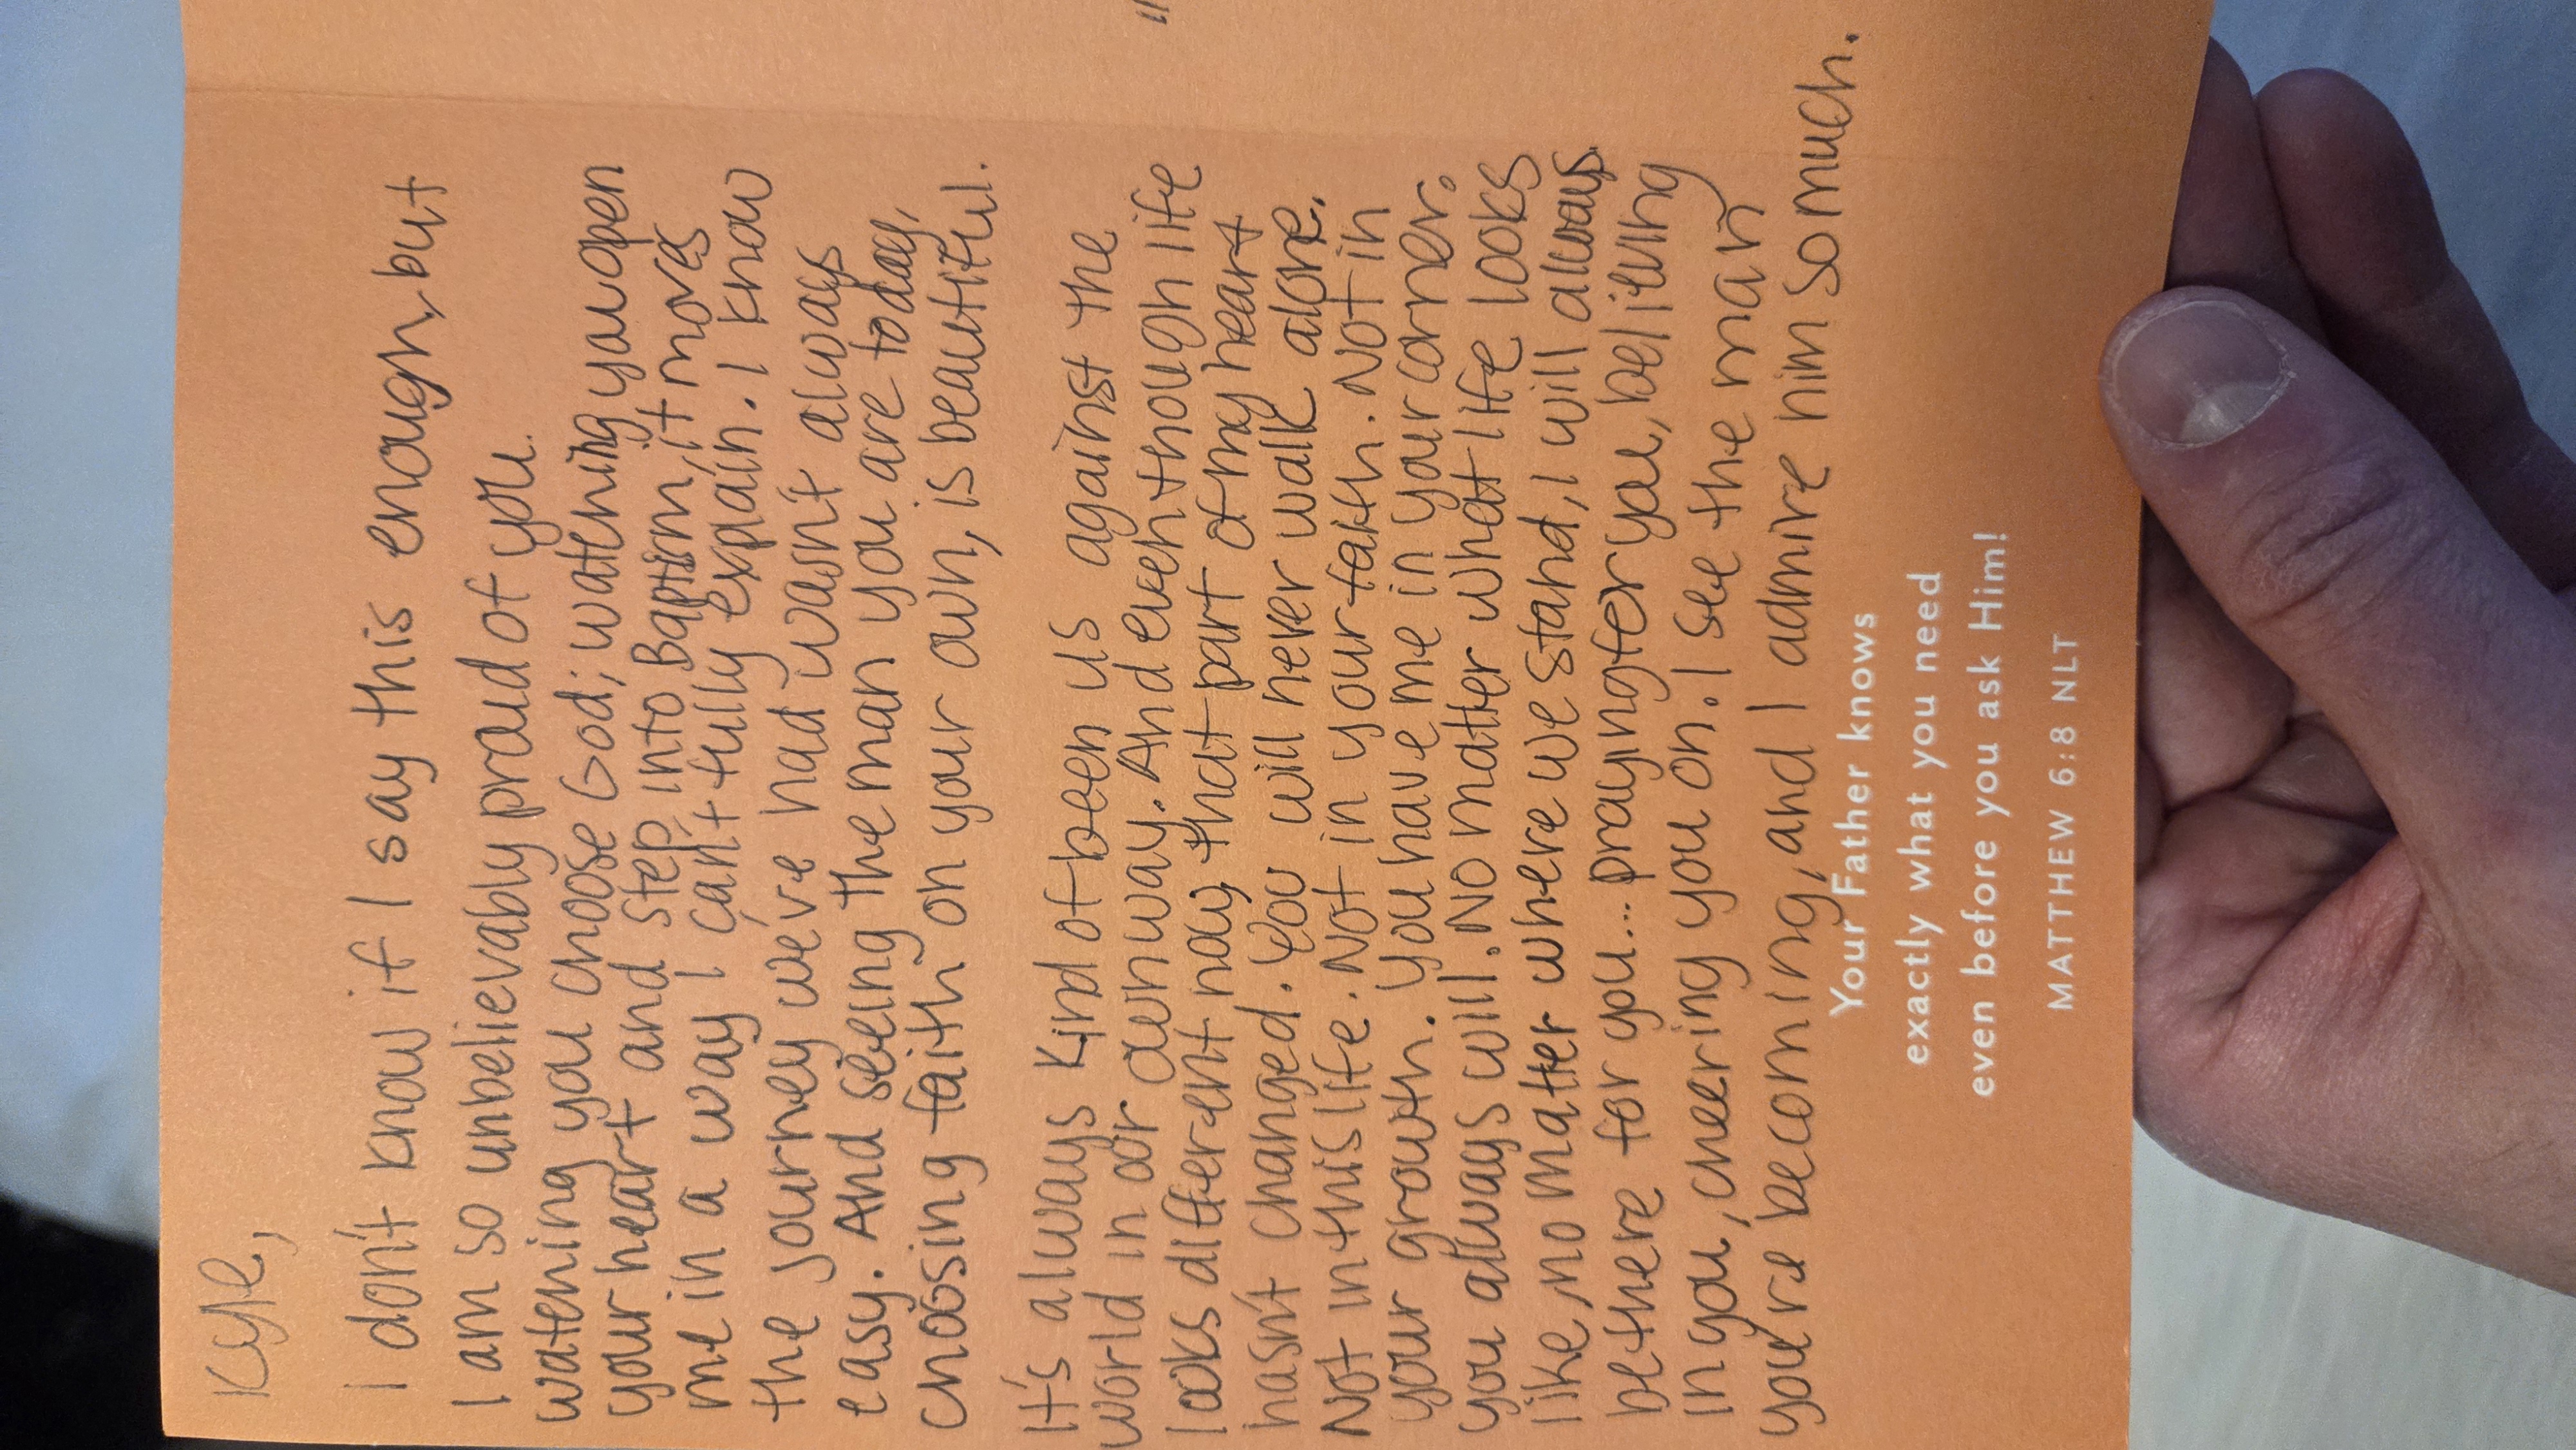 Kyle,
I don't know if I say this enough, but
I am so unbelievably proud of you.
watching you choose God; watching you open
your heart and step into Baptism, it moves
me in a way I can't fully explain. I know
the journey we've had wasn't always
easy. And seeing the man you are today,
choosing faith on your own, is beautiful.
It's always kind of been us against the
world in our own way. And even though life
looks different now, that part of my heart
hasn't changed. You will never walk alone.
Not in this life. Not in your faith. Not in
your growth. You have me in your corner.
you always will. No matter what life looks
like, no matter where we stand, I will always
be there for you... praying for you, believing
in you, cheering you on. I see the man
you're becoming, and I admire him so much.
Your Father knows
exactly what you need
even before you ask Him!
MATTHEW 6:8 NLT